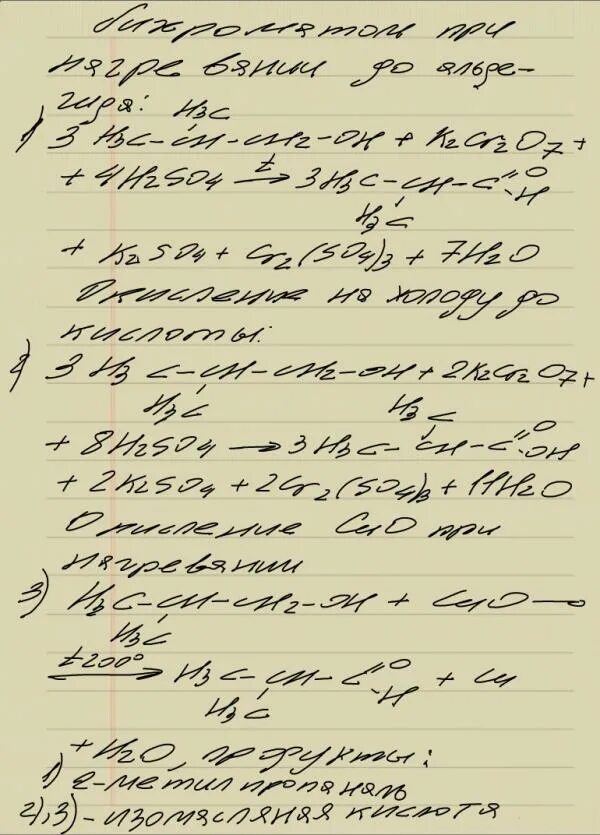 бихроматом при
нагревании до альде-
гида:
H3C
1) 3 H3C-CH-CH2-OH + K2Cr2O7 +
+ 4H2SO4 t→ 3H3C-CH-C=O-H
H3C
+ K2SO4 + Cr2(SO4)3 + 7H2O
Окисление на холоду до
кислоты:
2) 3 H3C-CH-CH2-OH + 2K2Cr2O7 +
H3C H3C
+ 8H2SO4 → 3H3C-CH-C=O-OH
+ 2K2SO4 + 2Cr2(SO4)3 + 11H2O
Окисление CuO при
нагревании
3) H3C-CH-CH2-OH + CuO —
H3C
t200° → H3C-CH-C=O-H + Cu
H3C
+ H2O, продукты:
1) 2-метилпропаналь
2),3)-изомасляная кислота